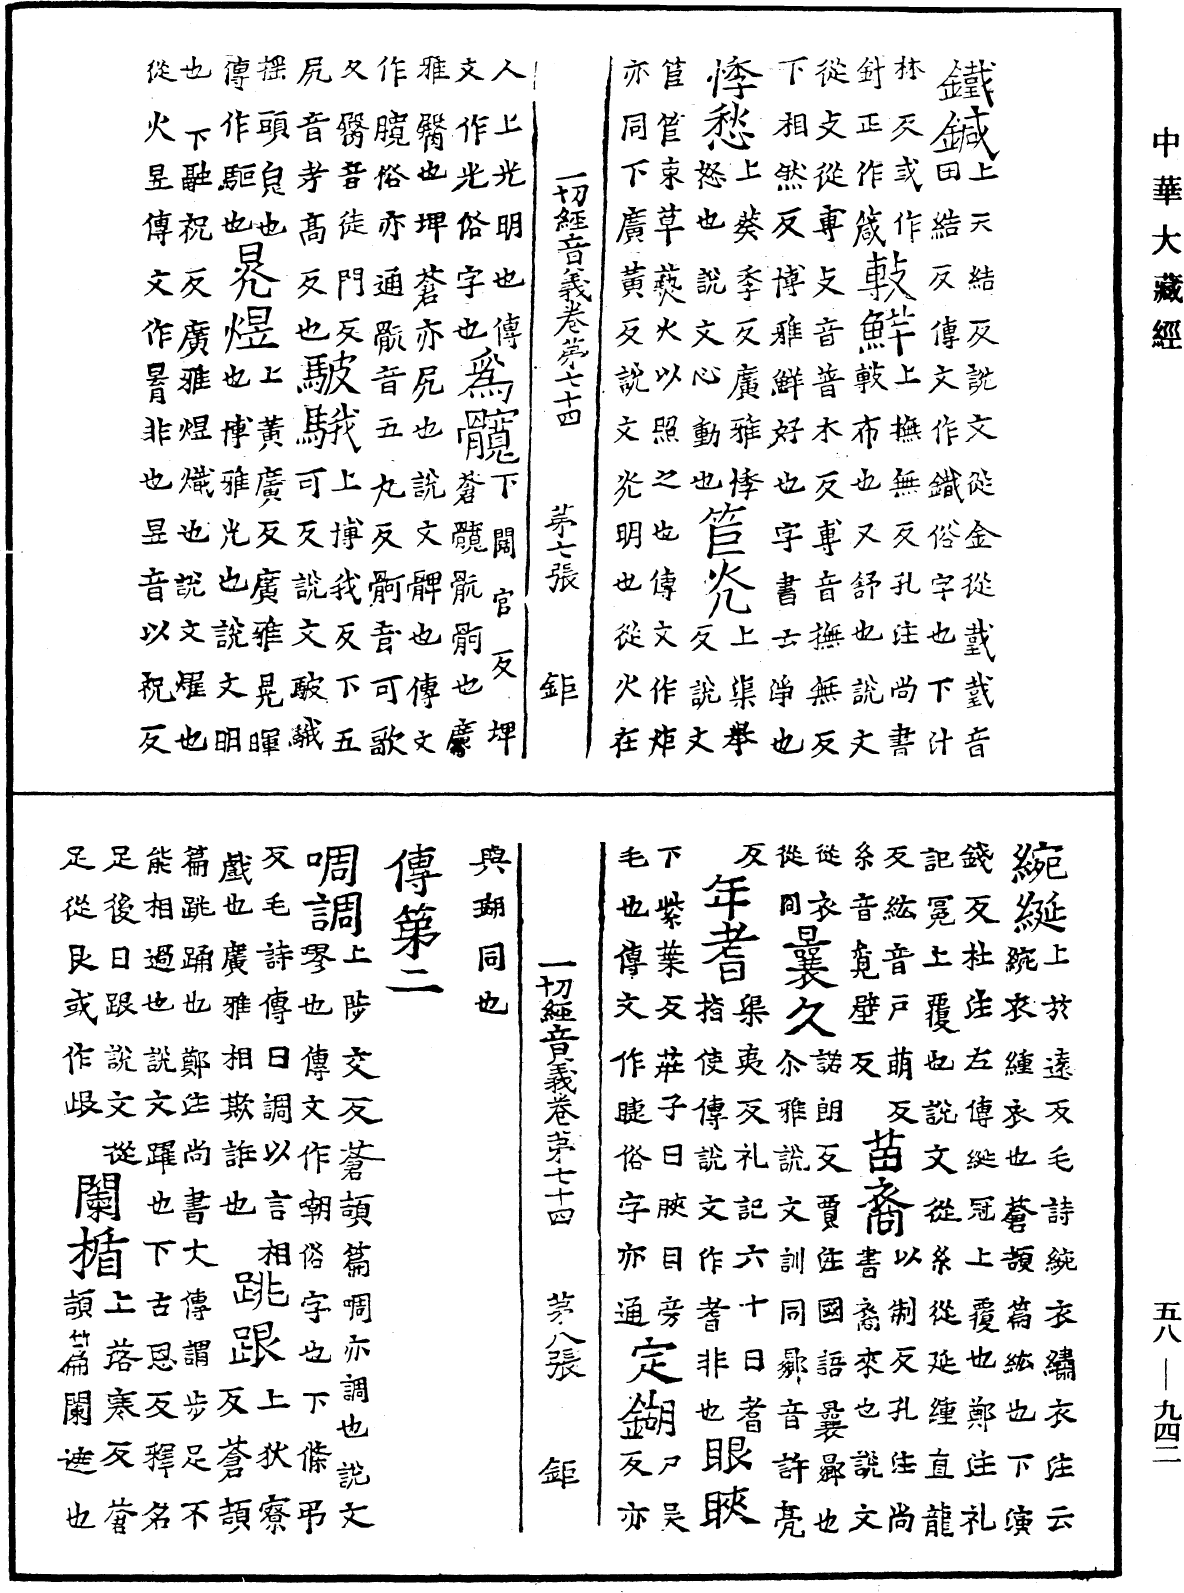 中華大藏經
鐵鍼上天結反說文從金從𢧜𢧜音
田結反傳文作鐵俗字也下汁
林反或作
針正作箴敷鮮上撫無反孔注尚書
敷布也又舒也說文
從攴從尃攴音普木反尃音撫無反
下相然反博雅鮮好也字書云淨也
悸愁上葵季反廣雅悸
怒也說文心動也苣光上渠舉
反說文
苣管束草爇火以照之也傳文作炬
亦同下廣黃反說文光明也從火在
一切經音義卷第七十四 第七張 鉅
人上光明也傳
文作光俗字也為髖下闊官反埤
蒼髖骯䯊也廣
雅臀也埤蒼亦尻也說文髀也傳文
作臗俗亦通骯音五丸反䯊音可歌
反臀音徒門反
尻音考高反也駊騀上博我反下五
可反說文駊騀
搖頭皃也
傳作驅也晃煜上黃廣反廣雅晃暉
也博雅光也說文明
也下融祝反廣雅煜熾也說文燿也
從火昱傳文作非也昱音以祝反
綩綖上於遠反毛詩綩衣繡衣注云
綩衣纁衣也蒼頡篇紘也下演
錢反杜注左傳綖冠上覆也鄭注礼
記冕上覆也說文從糸從延纁直龍
反紘音戶萌反
糸音覓壁反苗裔以制反孔注尚
書裔來也說文
從衣
從冏曩久諾朗反賈注國語曩曏也
尒雅說文訓同曏音許亮
反年耆渠夷反礼記六十日耆
指使傳說文作耆非也眼䀹
下紫葉反莊子曰䀹目旁
毛也傳文作睫俗字亦通定鍸戶吳
反亦
一切經音義卷第七十四 第八張 鉅
與瑚同也
傳第二
啁調上陟交反蒼頡篇啁亦調也說文
琴也傳文作嘲俗字也下條弔
反毛詩傳曰調以言相
戲也廣雅相欺誰也跳跟上狄寮
反蒼頡
篇跳踊也鄭注尚書大傳謂步足不
能相過也說文躍也下古恩反釋名
足後曰跟說文從
足從艮或作𣥦闌楯上落寒反蒼
頡篇闌遮也
五八—九四二